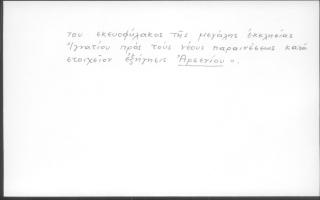 του σκευοφύλακος τῆς μεγάλης ἐκκλησίας
Ἰγνατίου πρὸς τοὺς νέους παραινέσεως κατὰ
στοιχεῖον ἐξήγησις Ἀρσενίου".